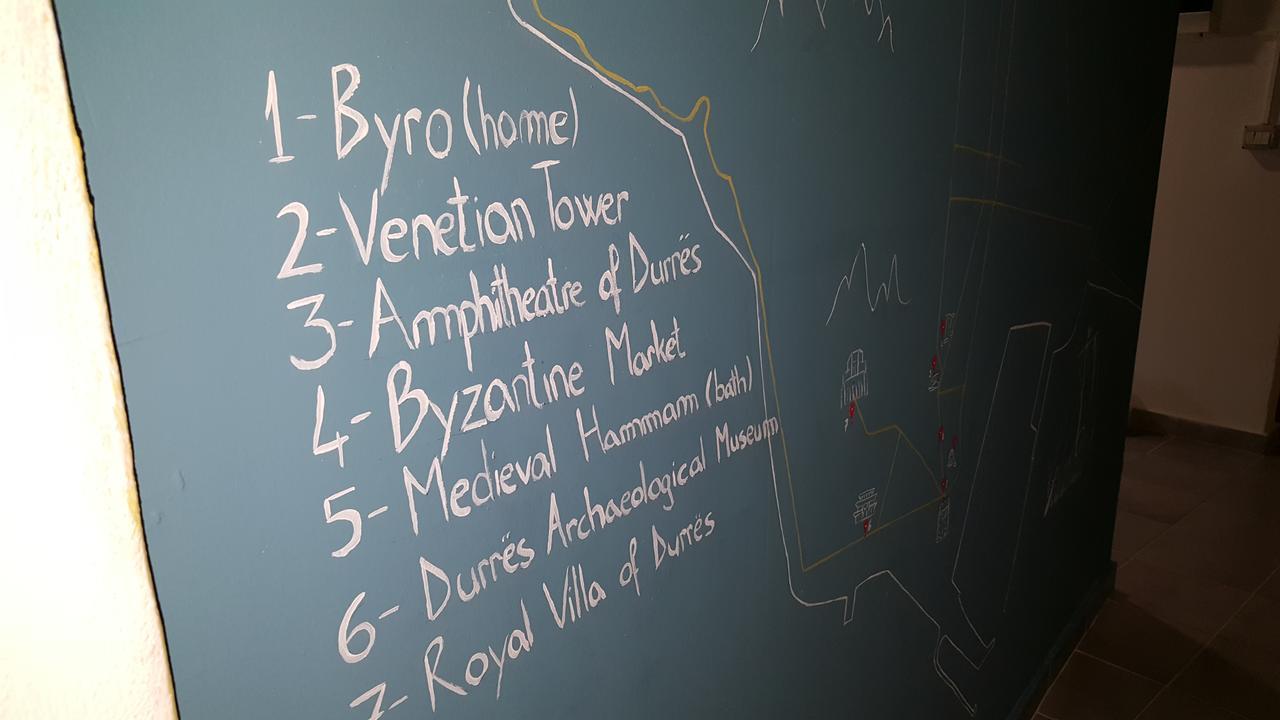 1-Byro (home)
2-Venetian Tower
3-Amphitheatre of Durrës
4-Byzantine Market
5-Medieval Hammam (bath)
6-Durrës Archaeological Museum
7-Royal Villa of Durrës